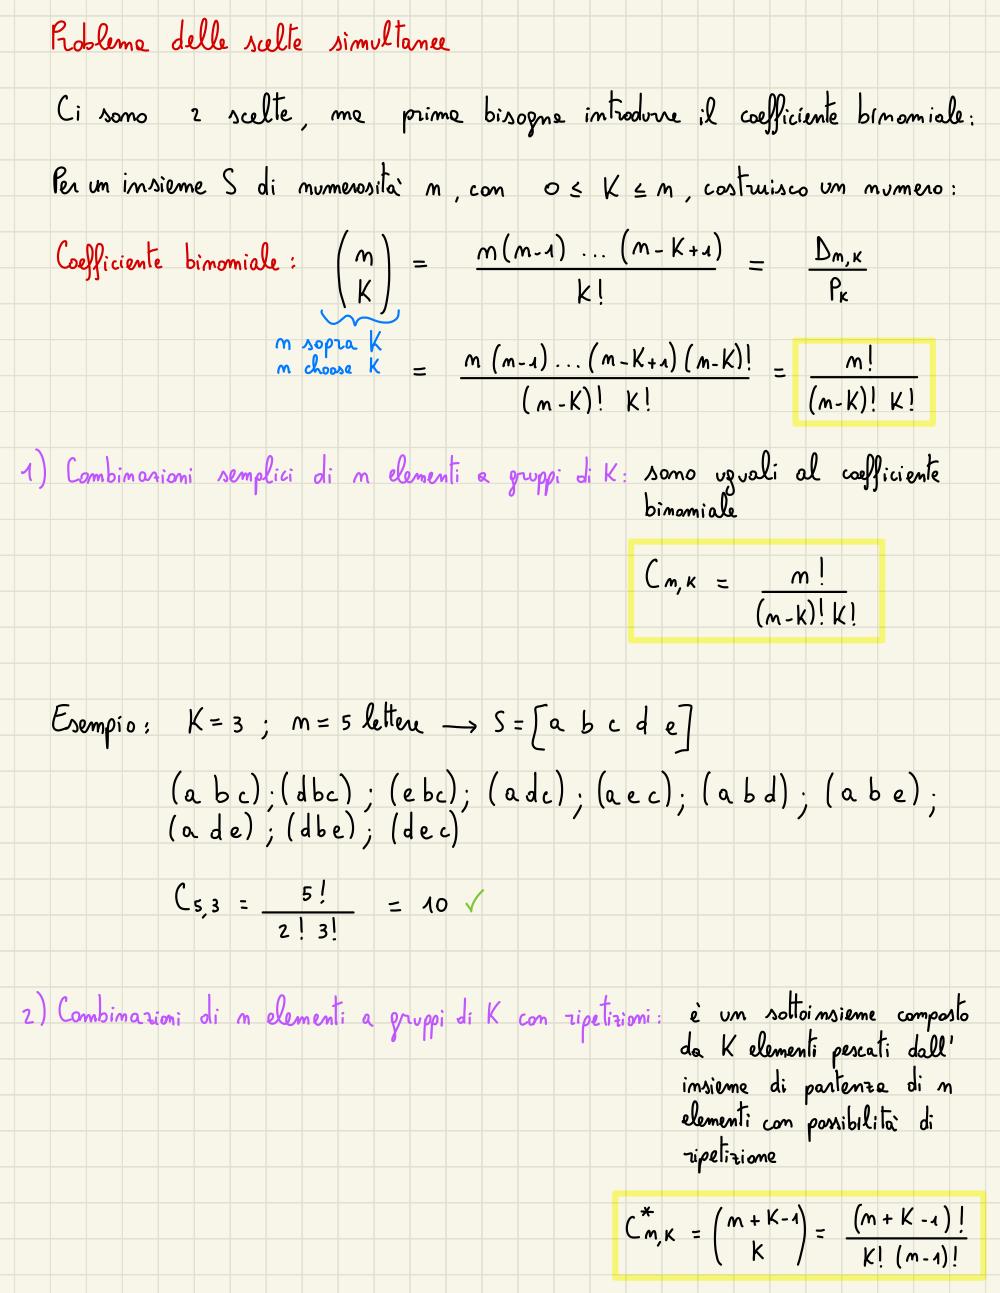 Problema delle scelte simultanee
Ci sono 2 scelte, ma prima bisogna introdurre il coefficiente binomiale:
Per un insieme S di numerosità n, con 0 ≤ K ≤ n, costruisco un numero:
Coefficiente binomiale: (n K) = n(n-1) ... (n-K+1) / K! = Dn,K / PK
n sopra K
n choose K = n(n-1)...(n-K+1)(n-K)! / (n-K)! K! = n! / (n-K)! K!
1) Combinazioni semplici di n elementi a gruppi di K: sono uguali al coefficiente
binomiale
Cn,K = n! / (n-k)! K!
Esempio: K=3 ; n=5 lettere → S=[a b c d e]
(a b c); (dbc) ; (ebc); (adc) ; (aec); (abd) ; (a b e) ;
(a de) ; (dbe) ; (dec)
C5,3 = 5! / 2! 3! = 10 ✓
2) Combinazioni di n elementi a gruppi di K con ripetizioni: è un sottoinsieme composto
da K elementi pescati dall'
insieme di partenza di n
elementi con possibilità di
ripetizione
C*n,K = (n+K-1 K) = (n+K-1)! / K! (n-1)!